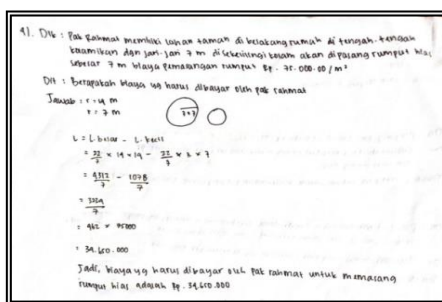 41. Dik : Pak Rahmat memiliki lahan taman di belakang rumah di tengah-tengah
kolam ikan dgn jari-jari 7 m di sekelilingi kolam akan dipasang rumput hias
sebesar 7 m biaya pemasangan rumput Rp. 75.000.00 / m²
Dit : Berapakah biaya yg harus dibayar oleh pak rahmat
Jawab : r = 14 m
r = 7 m
7+7
L = L. besar - L. kecil
= 22/7 x 14 x 14 - 22/7 x 7 x 7
= 4312/7 - 1078/7
= 3234/7
= 462 x 75000
= 34.650.000
Jadi, biaya yg harus dibayar oleh Pak rahmat untuk memasang
rumput hias adalah Rp. 34.650.000